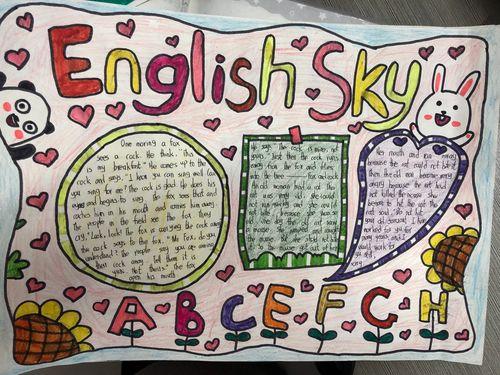 English Sky
One moring a fox
sees a cock. He think. "This
is my breakfast." He comes up to the
cock and says. "I know you can sing well. Can
you sing for me? The cock is glad. He closes his
eyes and begins to sing. The fox sees that and
caches him in his mouth and carries him away.
The people in the field see the fox. They
cry. "Look, look! The fox is carrying the cock away."
The cock says to the fox. "Mr Fox, do you
understand? The people say you are carrying
their cock away. Tell them it is
yours. Not theirs." The fox
opens his mouth
says. The cock is mine, not
yours." Just then the cock runs
away from the fox and flies
into the tree. Fox and cock
An old woman had a cat. The
cat was very old. she could
not run quickly and she could
not bite, because she was so
old. One day the old cat saw
a mouse. She jumped and caught
the mouse. But she could not bite
it. So the mouse got out of
Her mouth and run away
because the cat could not bite it
Then the old woman became very
angry because the cat had
not killed the mouse. She
began to hit the cat. The
cat said, "Do not hit
your old servant. I have
worked for you for
many years, and I
would work for
you still,
A B C E F G H